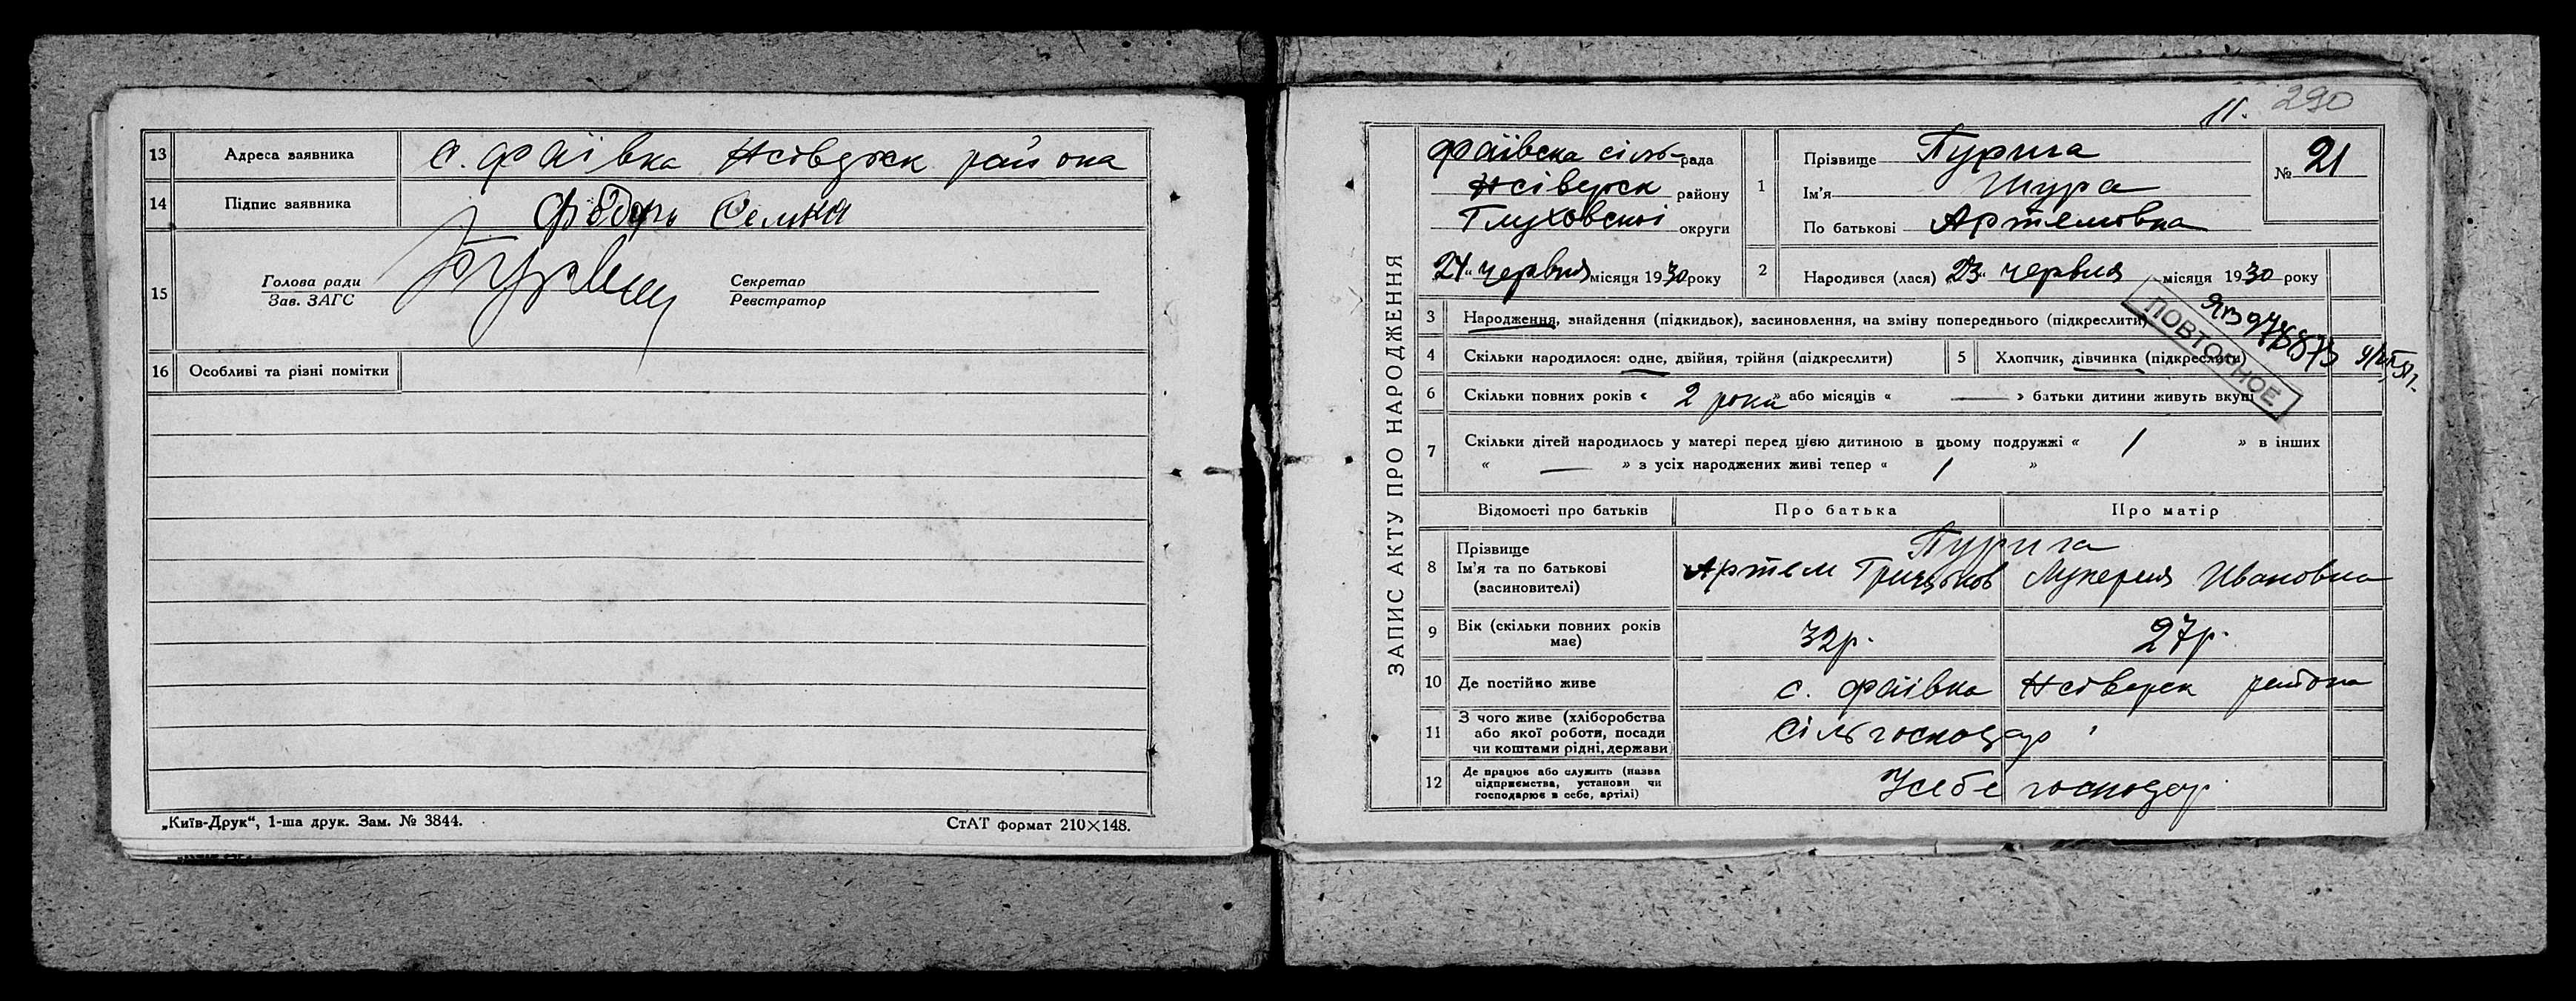 13 Адреса заявника с. Фаівка Нсіверск района
14 Підпис заявника Фёдоръ Семка
15 Голова ради
Зав. ЗАГС
Секретар
Реєстратор
16 Особливі та різні помітки
„Київ-Друк“, 1-ша друк. Зам. № 3844.
СтАТ формат 210×148.
11. 290
ЗАПИС АКТУ ПРО НАРОДЖЕННЯ
Фаївска сіль-рада
Нсіверск району
Глуховскої округи
24 червня місяця 1930 року
1 Прізвище Пурига
Ім'я Шура
По батькові Артемовна
№ 21
2 Народився (лася) „23“ червня місяця 1930 року
3 Народження, знайдення (підкидьок), засиновлення, на зміну попереднього (підкреслити)
ПОВТОРНОЕ
4 Скільки народилося: одне, двійня, трійня (підкреслити)
5 Хлопчик, дівчинка (підкреслити)
6 Скільки повних років « 2 рока » або місяців « — » батьки дитини живуть вкупі
7 Скільки дітей народилось у матері перед цією дитиною в цьому подружжі « 1 » в інших
« — » з усіх народжених живі тепер « 1 »
Відомості про батьків Про батька Про матір
8 Прізвище Ім'я та по батькові (засиновителі)
Пурига
Артем Грицьков Лукерия Ивановна
9 Вік (скільки повних років має) 32р. 27р.
10 Де постійно живе с. Фаівка Нсіверск района
11 З чого живе (хліборобства або якої роботи, посади чи коштами рідні, держави) Сільгосподар
12 Де працює або служить (назва підприємства, установи чи господарює в себе, артілі) Усебе господар